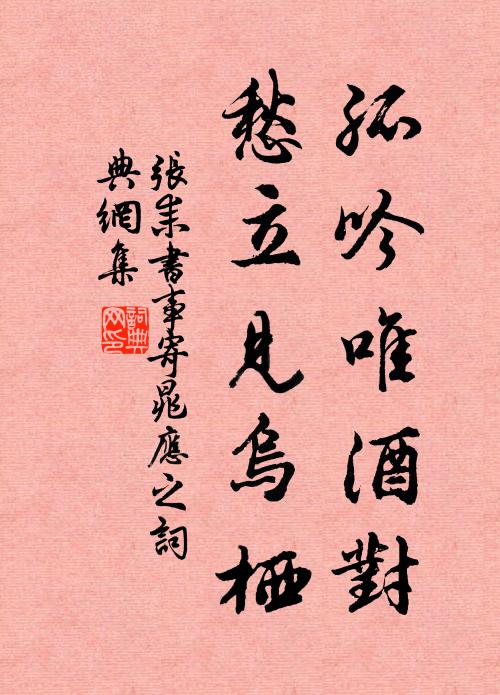 孤吟唯酒對
愁立見烏栖
張耒書事寄晁應之詞
典網集
詞典網印